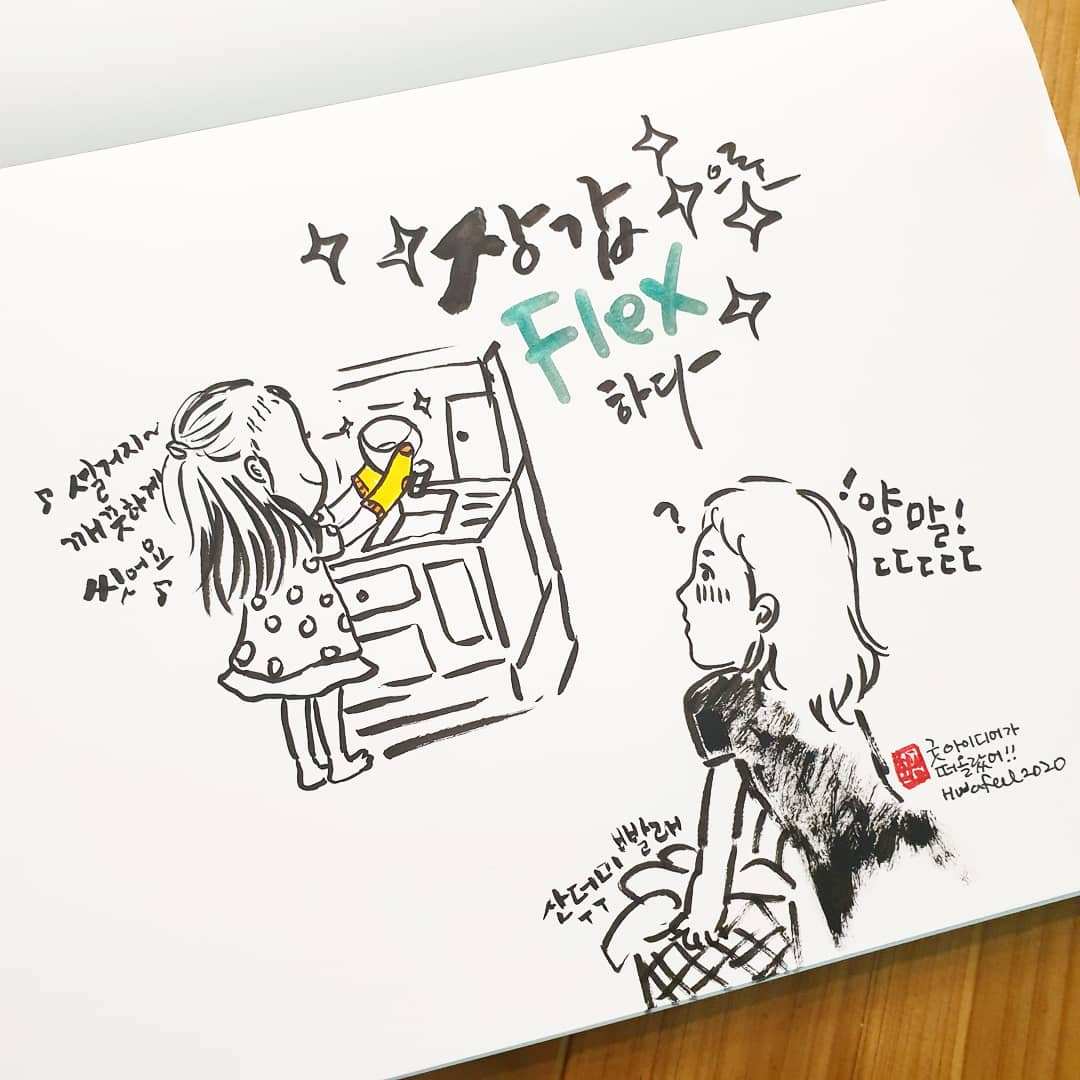 장갑
Flex
하다
♪ 설거지~
깨끗하게
씻어요 ♪
?
! 양말!
ㄷㄷㄷㄷㄷ
굿아이디어가
떠올랐어!!
Hwafeel2020
산더미 빨래
ㅜㅜ